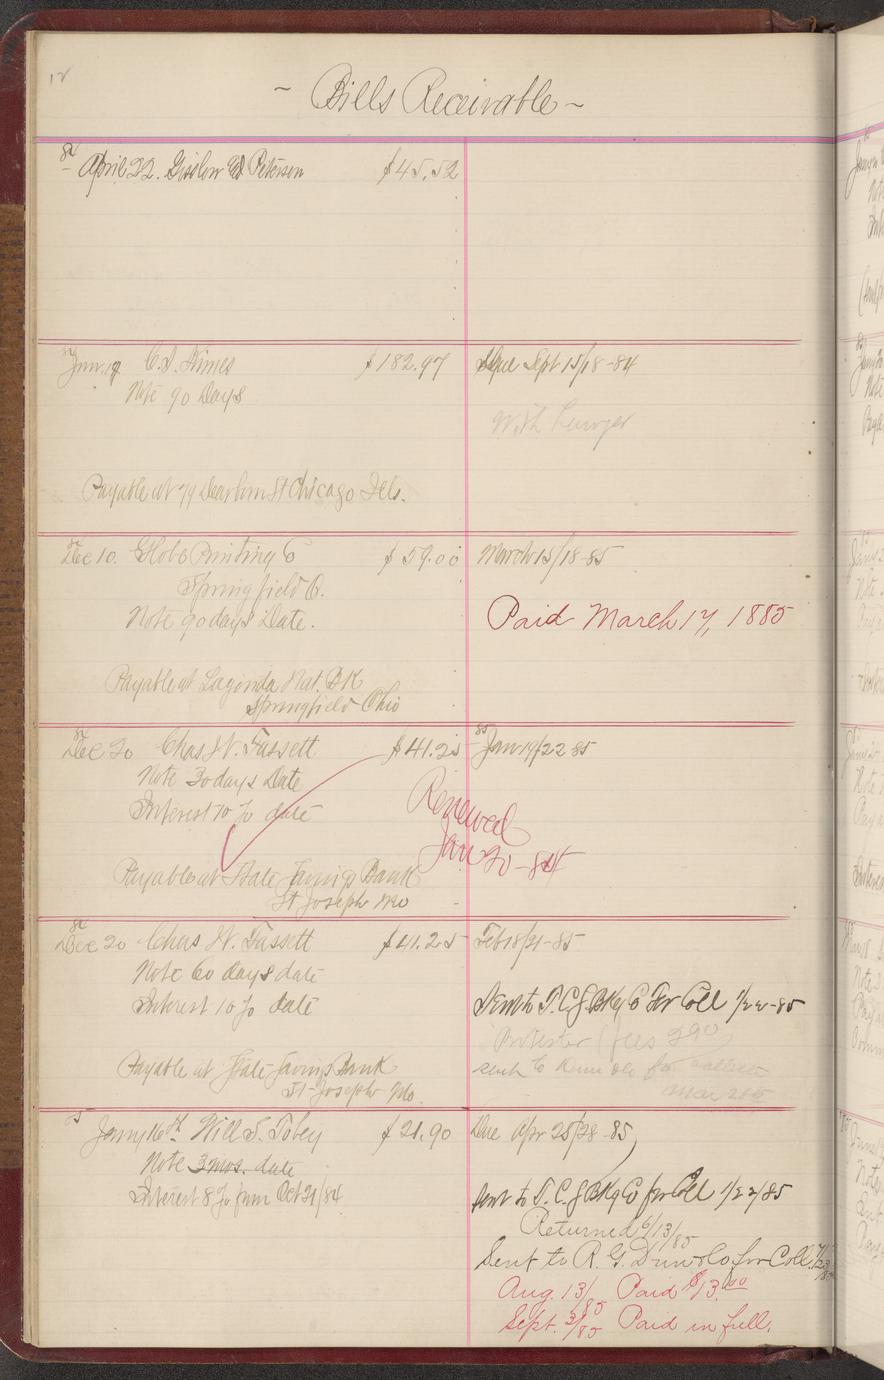 12
~ Bills Receivable ~
84
April 22. Gisslow & Peterson $45.52
84
Jun. 17 C. S. Himes $182.97 Due Sept 15/18-84
Note 90 Days
With Lawyer
Payable at 79 Dearborn St Chicago Ills.
84
Dec 10. Globe Printing Co $59.00 March 15/18-85
Springfield O.
Note 90 days Date. Paid March 17, 1885
Payable at Lagonda Nat. BK
Springfield Ohio
84 85
Dec 20 Chas W. Fassett $41.25 Jan 19/22 85
Note 30 days Date
Interest 10 % date
Renewed
Jan 20-84
Payable at State Savings Bank
St Joseph Mo
84
Dec 20 Chas W. Fassett $41.25 Feb 18/21-85
Note 60 days date
Interest 10 % date Sent to T.C.J. BKg Co For Coll 1/22-85
Protested (fees 290)
Payable at State Savings Bank sent to Dun & Co for collection
St Joseph Mo. Mar 26
85
Jany 16th Will S. Tobey $21.90 Due Apr 25/28-85
Note 3 mos. date
Interest 8 % from Oct 21/84 Sent to T. C. J BKg Co for Coll 1/22/85
Returned 6/13/85
Sent to R. G. Dun & Co. for Coll. 7/23/85
Aug. 13/85 Paid $13.00
Sept. 3/85 Paid in full.